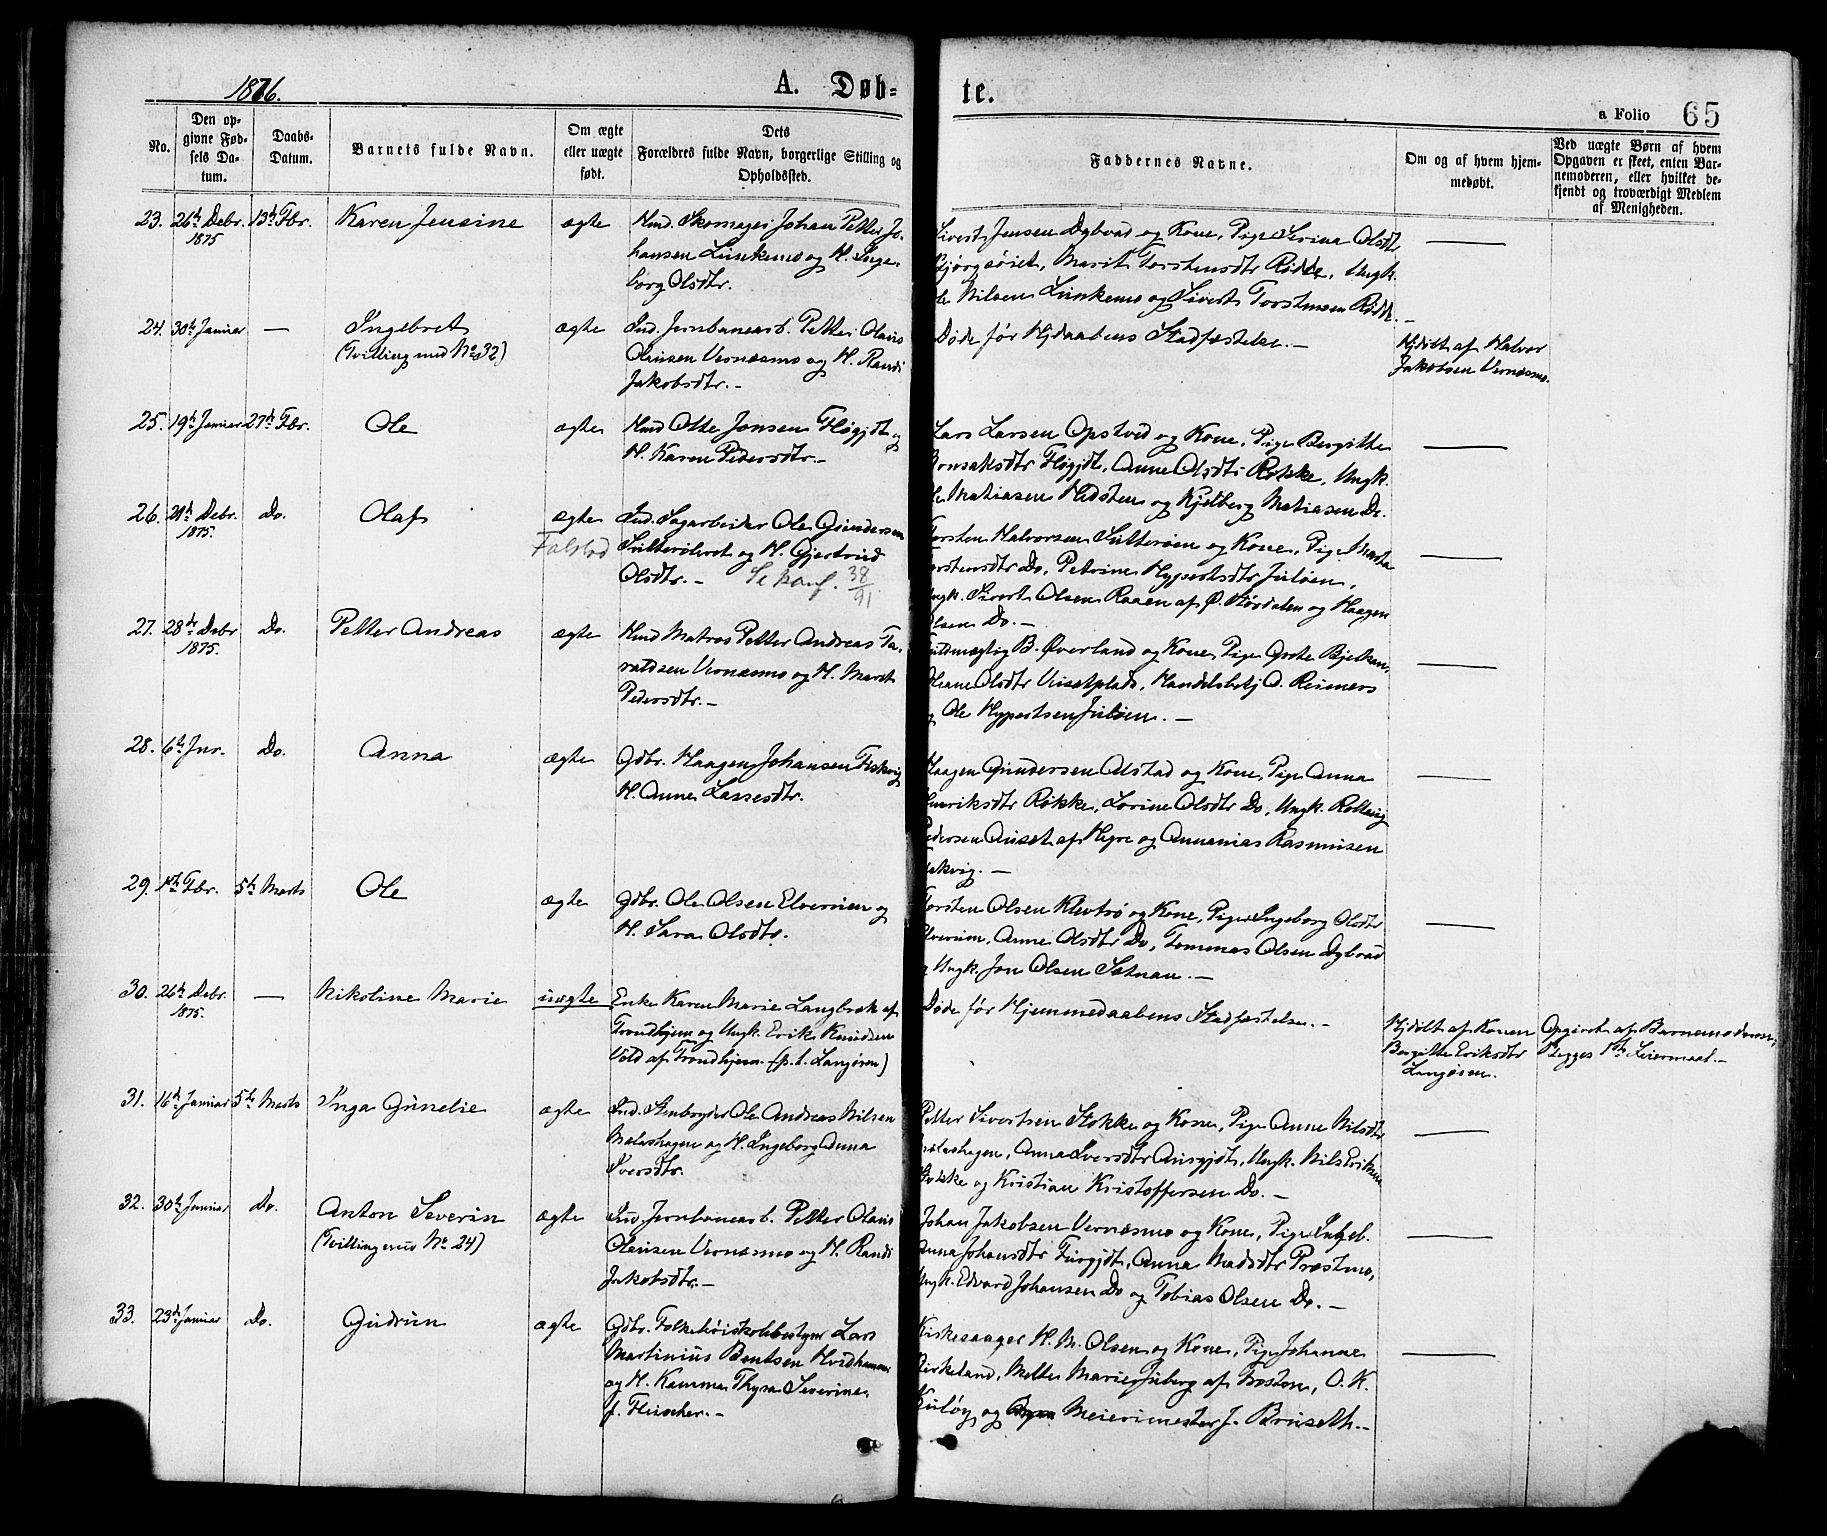 1876.
A. Døb-
te.
a Folio 65
No.
Den op-
givne Fød-
sels Da-
tum.
Daabs-
Datum.
Barnets fulde Navn.
Om ægte
eller uægte
født.
Dets
Forældres fulde Navn, borgerlige Stilling og
Opholdssted.
Faddernes Navne.
Om og af hvem hjem-
medøbt.
Ved uægte Børn af hvem
Opgaven er skeet, enten Bar-
nemoderen, eller hvilket be-
kjendt og troværdigt Medlem
af Menigheden.
23. 26de Debr. 1875
13de Fbr.
Karen Jensine
ægte
Hmd. Skomager Johan Petter Jo-
hansen Lunkemo og H. Inge-
borg Olsdtr.
Sivert Jensen Dybvad og Kone, Pige Serina Olsdtr
Marit Torstensdtr Rødde, Ungk.
Nilsen Lunkemo og Sivert Torstensen Rødde.
24. 30te Januar
—
Ingebret
(Tvilling med No 32)
ægte
Ind. Jernbanearb. Petter Olaus
Olausen Vernæsmo og H. Randi
Jakobsdtr. —
Døde før Hjdaabens Stadfæstelse. —
Hjdøbt af Halvor
Jakobsen Vernæsmo.
25. 19de Januar
27de Fbr.
Ole
ægte
Hmd Otte Jonsen Fløgjdt og
H. Karen Pedersdtr. —
Lars Larsen Opstved og Kone, Pige Bergitte
Fløgjdt, Anne Olsdtr Røkke, Ungk.
Matiasen Hedsten og Kjelberg Matiasen Do.
26. 21de Debr. 1875.
Do.
Olaf
ægte
Falstad
Ind. Sagarbeider Ole Gundersen
Sutterøleret og H. Gjertrud
Olsdtr. — Se konf. 38/91.
Torsten Halvorsen Sutterøen og Kone, Pige Marta
Torstensdtr Do, Petrine Hypertsdtr Juløen,
Ungk. Sivert Olsen Raaen af Ø. Størdalen og Haagen
Olsen Do. —
27. 28de Debr 1875.
Do.
Petter Andreas
ægte
Hmd Matros Petter Andreas Ta-
raldsen Vernæsmo og H. Marit
Pedersdtr. —
Fuldmægtig B. Øverland og Kone, Pige Grete Bjelkan,
Oliane Olsdtr Uisetplads, Handelsbetj O. Reimers
og Ole Hypertsen Juløen. —
28. 6te Jnr.
Do.
Anna
ægte
Gdbr. Haagen Johansen Fiskvig
H. Anne Lassesdtr.
Haagen Gundersen Alstad og Kone, Pige Anna
Henriksdtr Røkke, Lorine Olsdtr Do, Ungk. Rollaug
Pedersen Auset af Hegre og Annanias Rasmusen
Fiskvig. —
29. 1ste Fbr.
5te Marts
Ole
ægte
Gdbr. Ole Olsen Elverum og
H. Sara Olsdtr.
Torsten Olsen Klevtrø og Kone, Piger Ingeborg Olsdtr
Elverum, Anne Olsdtr Do, Tommas Olsen Dybvad
og Ungk. Jon Olsen Sætnan. —
30. 26de Debr. 1875.
—
Nikoline Marie
uægte
Enke Karen Marie Langbæk af
Trondhjem og Ungk. Erik Knudsen
Vold af Trondhjem. (p. t. Langøren)
Døde før Hjemmedaabens Stadfæstelse. —
Hjdøbt af Konen
Bergitte Eriksdtr
Langøren.
Opgivet af Barnemoderen;
Begges 1ste Leiermaal. —
31. 16de Januar
5te Marts
Inga Gunelie
ægte
Ind. Stenbryder Ole Andreas Nilsen
Mæleshagen og H. Ingeborg Anna
Iversdtr.
Petter Sivertsen Stokke og Kone, Pige Anne Nilsdtr
Mæleshagen, Anna Iversdtr Ausgjdt, Ungk. Nils Eriksen
Stokke og Kristian Kristoffersen Do. —
32. 30te Januar
Do.
Anton Severin
(Tvilling med No 24)
ægte
Ind. Jernbanearb. Petter Olaus
Olausen Vernæsmo og H. Randi
Jakobsdtr. —
Johan Jakobsen Vernæsmo og Kone, Pige Ingeb.
Anna Johansdtr Fuogjdt, Anna Madsdtr Præstmo,
Ungk. Edvard Johansen Do og Tobias Olsen Do. —
33. 23de Januar
Do.
Gudrun
ægte
Gdbr. Folkehøiskolebestyrer Lars
Martinius Bentsen Hvidhammer
og H. Kamma Thyra Severine
f. Fleischer. —
Kirkesanger H. M. Olsen og Kone, Pige Johanne
Birkeland, Mette Marie Juberg af Boston, O. K.
Kuløy og Meierimester J. Bruseth. —